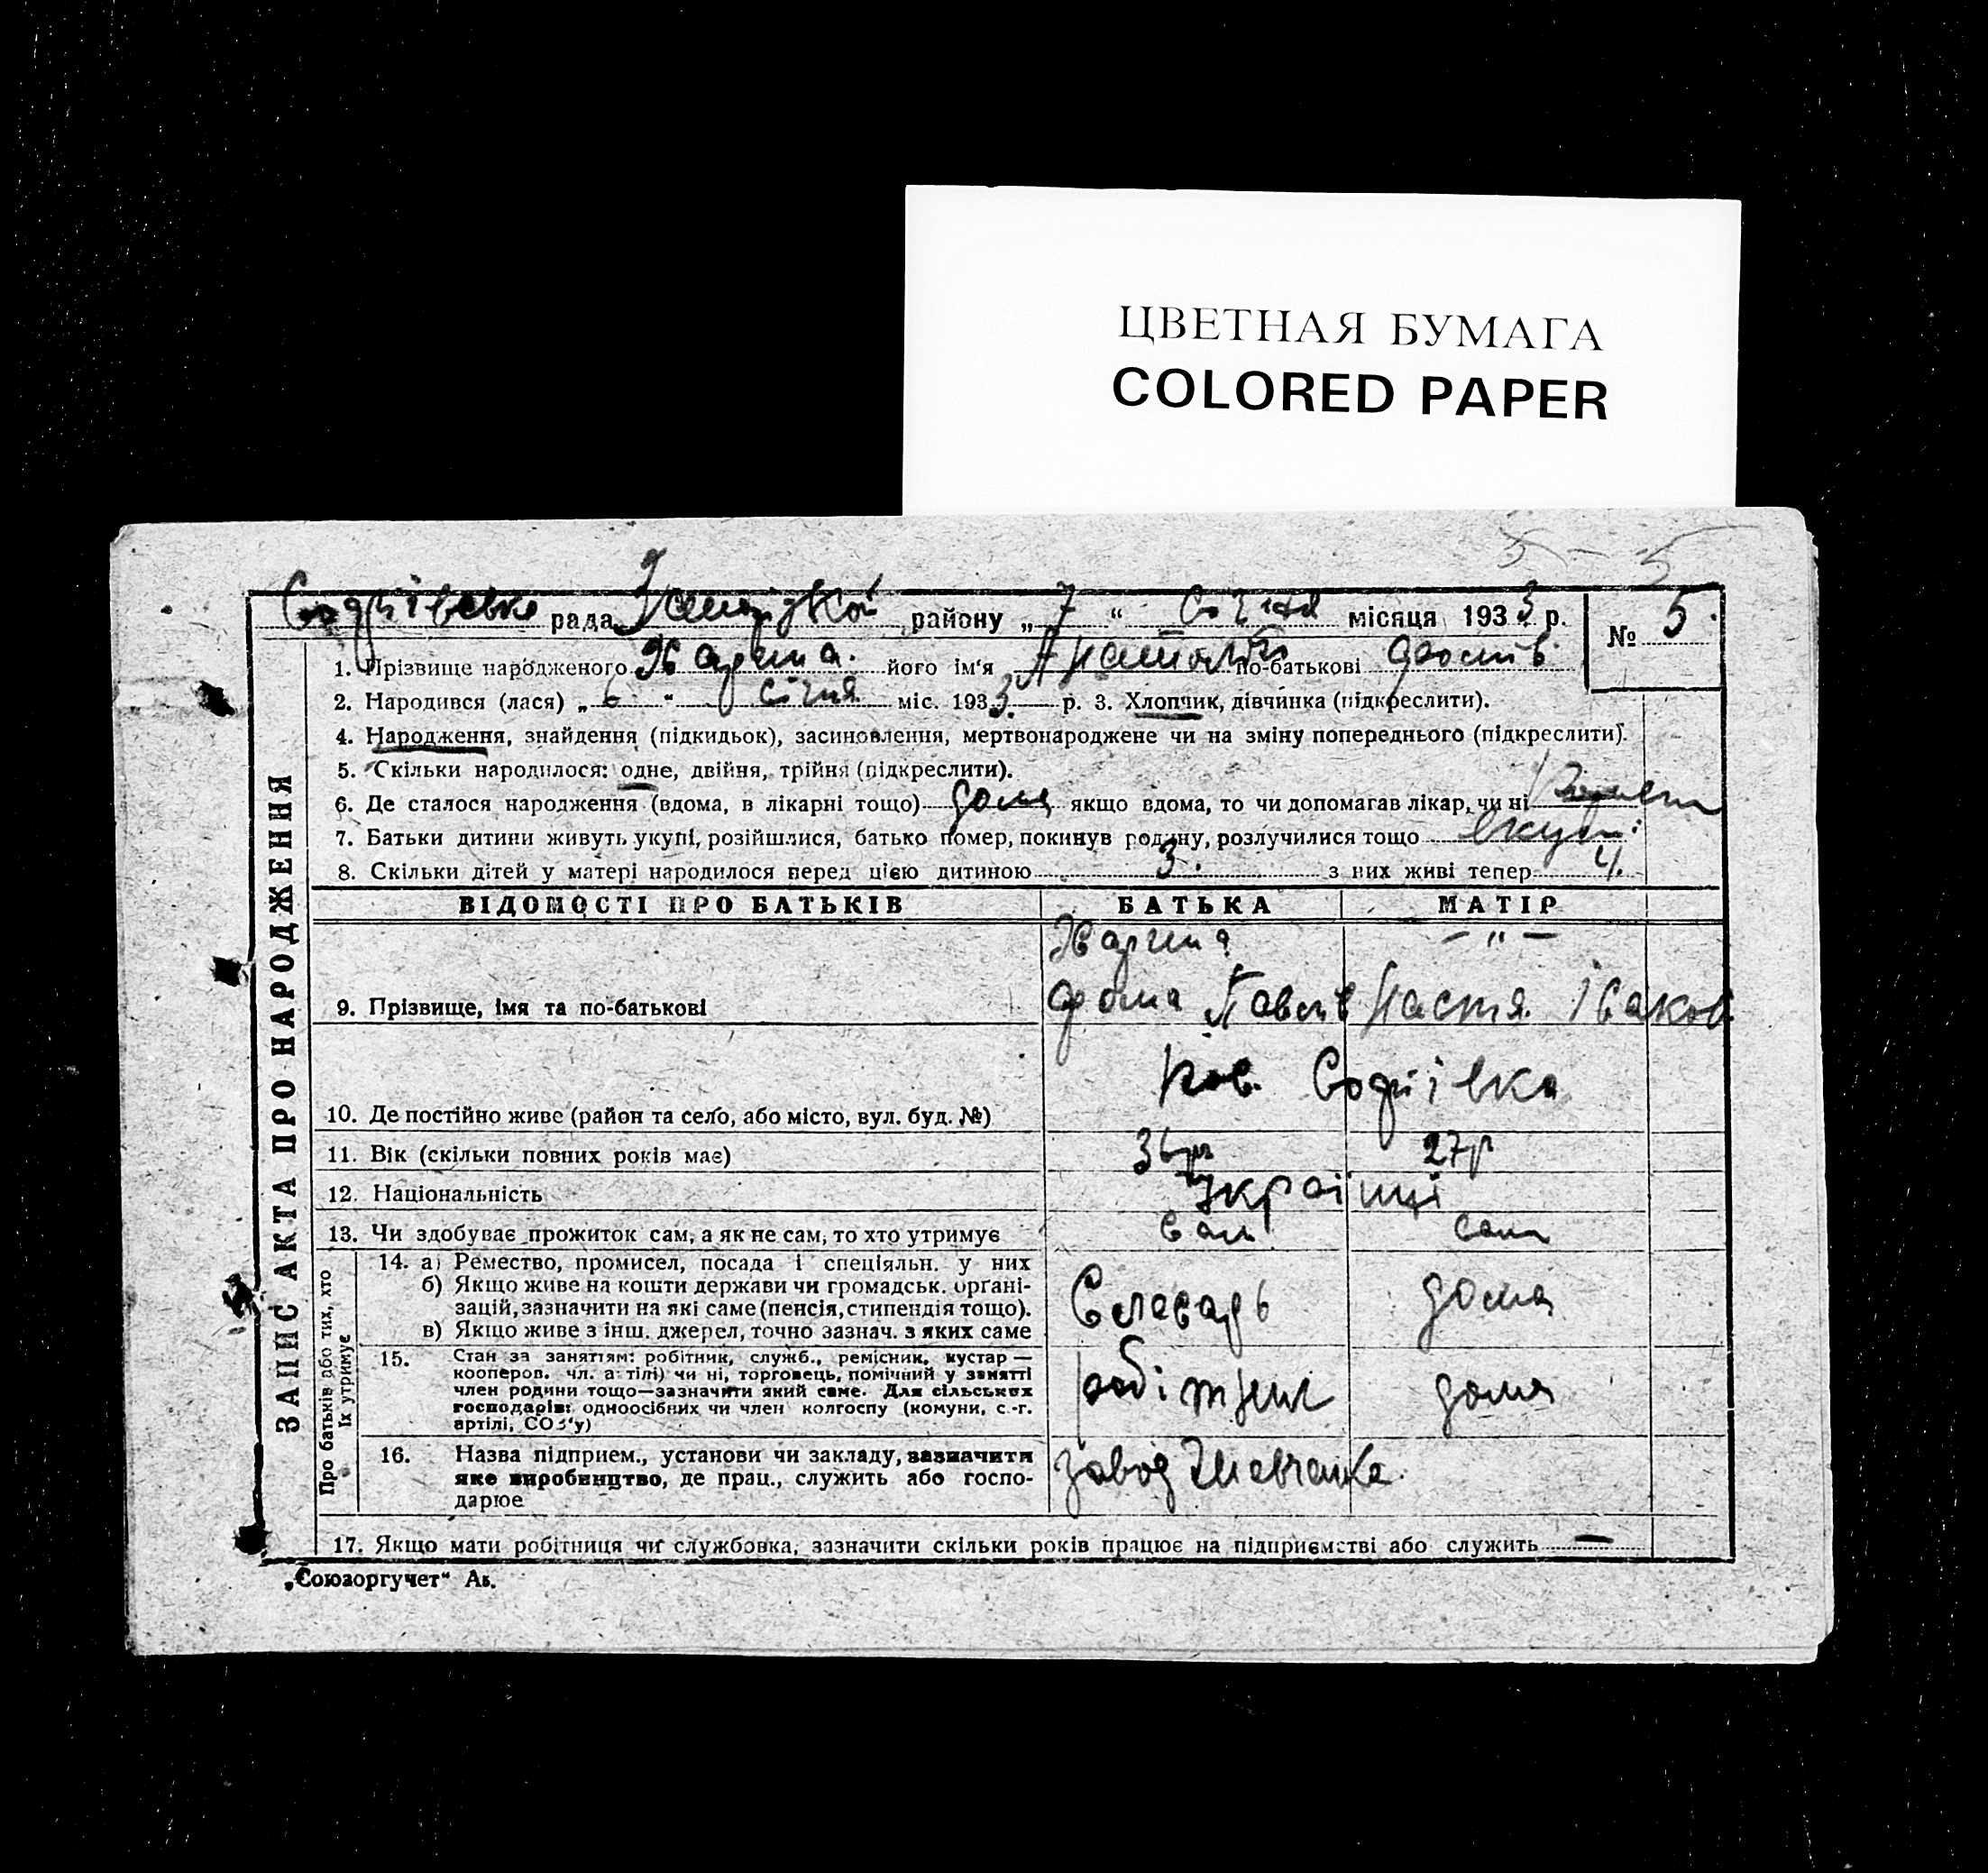 ЦВЕТНАЯ БУМАГА
COLORED PAPER
5 – 5
Софіївська рада району „ 7 “ Січня місяця 1933 р.
№ 5.
1. Прізвище народженого його ім'я Анатолій по-батькові
2. Народився (лася) „ 6 “ січня міс. 1933 р. 3. Хлопчик, дівчинка (підкреслити).
4. Народження, знайдення (підкидьок), засиновлення, мертвонароджене чи на зміну попереднього (підкреслити).
5. Скільки народилося: одне, двійня, трійня (підкреслити).
6. Де сталося народження (вдома, в лікарні тощо) дома якщо вдома, то чи допомагав лікар, чи ні
7. Батьки дитини живуть укупі, розійшлися, батько помер, покинув родину, розлучилися тощо вкупі
8. Скільки дітей у матері народилося перед цією дитиною 3. з них живі тепер 4.
ЗАПИС АКТА ПРО НАРОДЖЕННЯ
ВІДОМОСТІ ПРО БАТЬКІВ БАТЬКА МАТІР
— " —
9. Прізвище, імя та по-батькові Фома Павлів Настя Іваков.
10. Де постійно живе (район та село, або місто, вул. буд. №) Софіївка
11. Вік (скільки повних років має) 36р 27р
12. Національність Українці
13. Чи здобуває прожиток сам, а як не сам, то хто утримує сам сам
Про батьків або тих, хто їх утримує
14. а) Ремество, промисел, посада і спеціяльн. у них
б) Якщо живе на кошти держави чи громадськ. організацій, зазначити на які саме (пенсія, стипендія тощо).
в) Якщо живе з інш. джерел, точно зазнач. з яких саме
Слесарь дома
15. Стан за заняттям: робітник, служб., ремісник, кустар —
кооперов. чл. артілі) чи ні, торговець, помічний у занятті
член родини тощо—зазначити який саме. Для сільських
господарів: одноосібних чи член колгоспу (комуни, с.-г.
артілі, СОЗ'у)
робітник дома
16. Назва підприєм., установи чи закладу, зазначити
яке виробництво, де прац., служить або господарює
завод Шевченка
17. Якщо мати робітниця чи службовка, зазначити скільки років працює на підприємстві або служить —
„Союзоргучет“